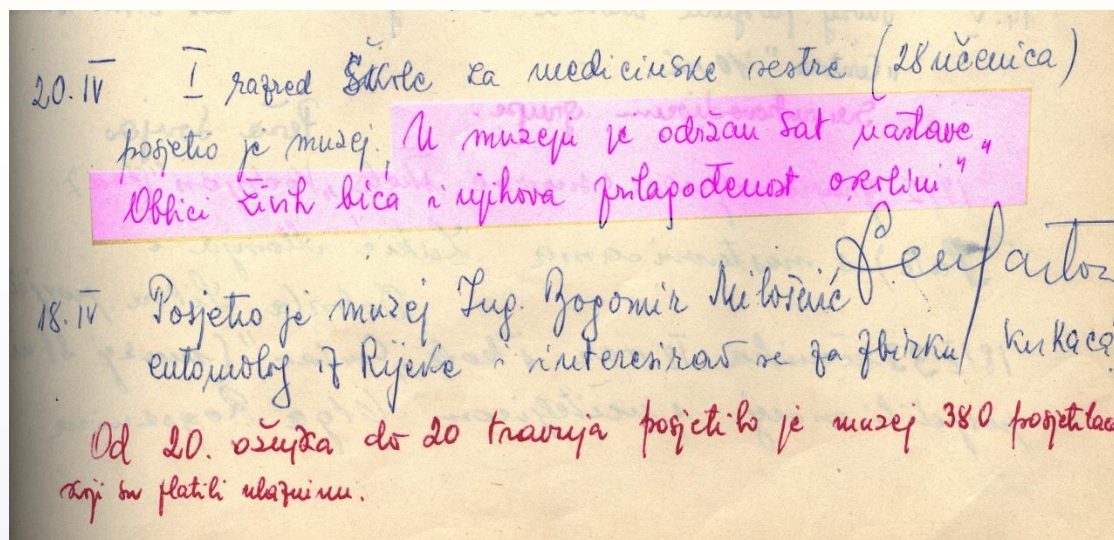 20. IV I razred Škole za medicinske sestre (28 učenica)
posjetio je muzej. U muzeju je održan sat nastave „
Oblici živih bića i njihova prilagođenost okolini"
18. IV Posjetio je muzej Ing. Bogomir Milošević
entomolog iz Rijeke i interesirao se za zbirku kukaca
Od 20. ožujka do 20 travnja posjetilo je muzej 380 posjetilaca
koji su platili ulazninu.